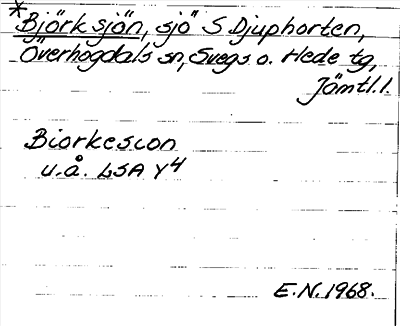 *Björksjön, sjö S Djuphorten,
Överhogdals sn, Svegs o. Hede tg,
Jämtl. l.
Biorkescon
u.å. LSA Y4
E.N. 1968.